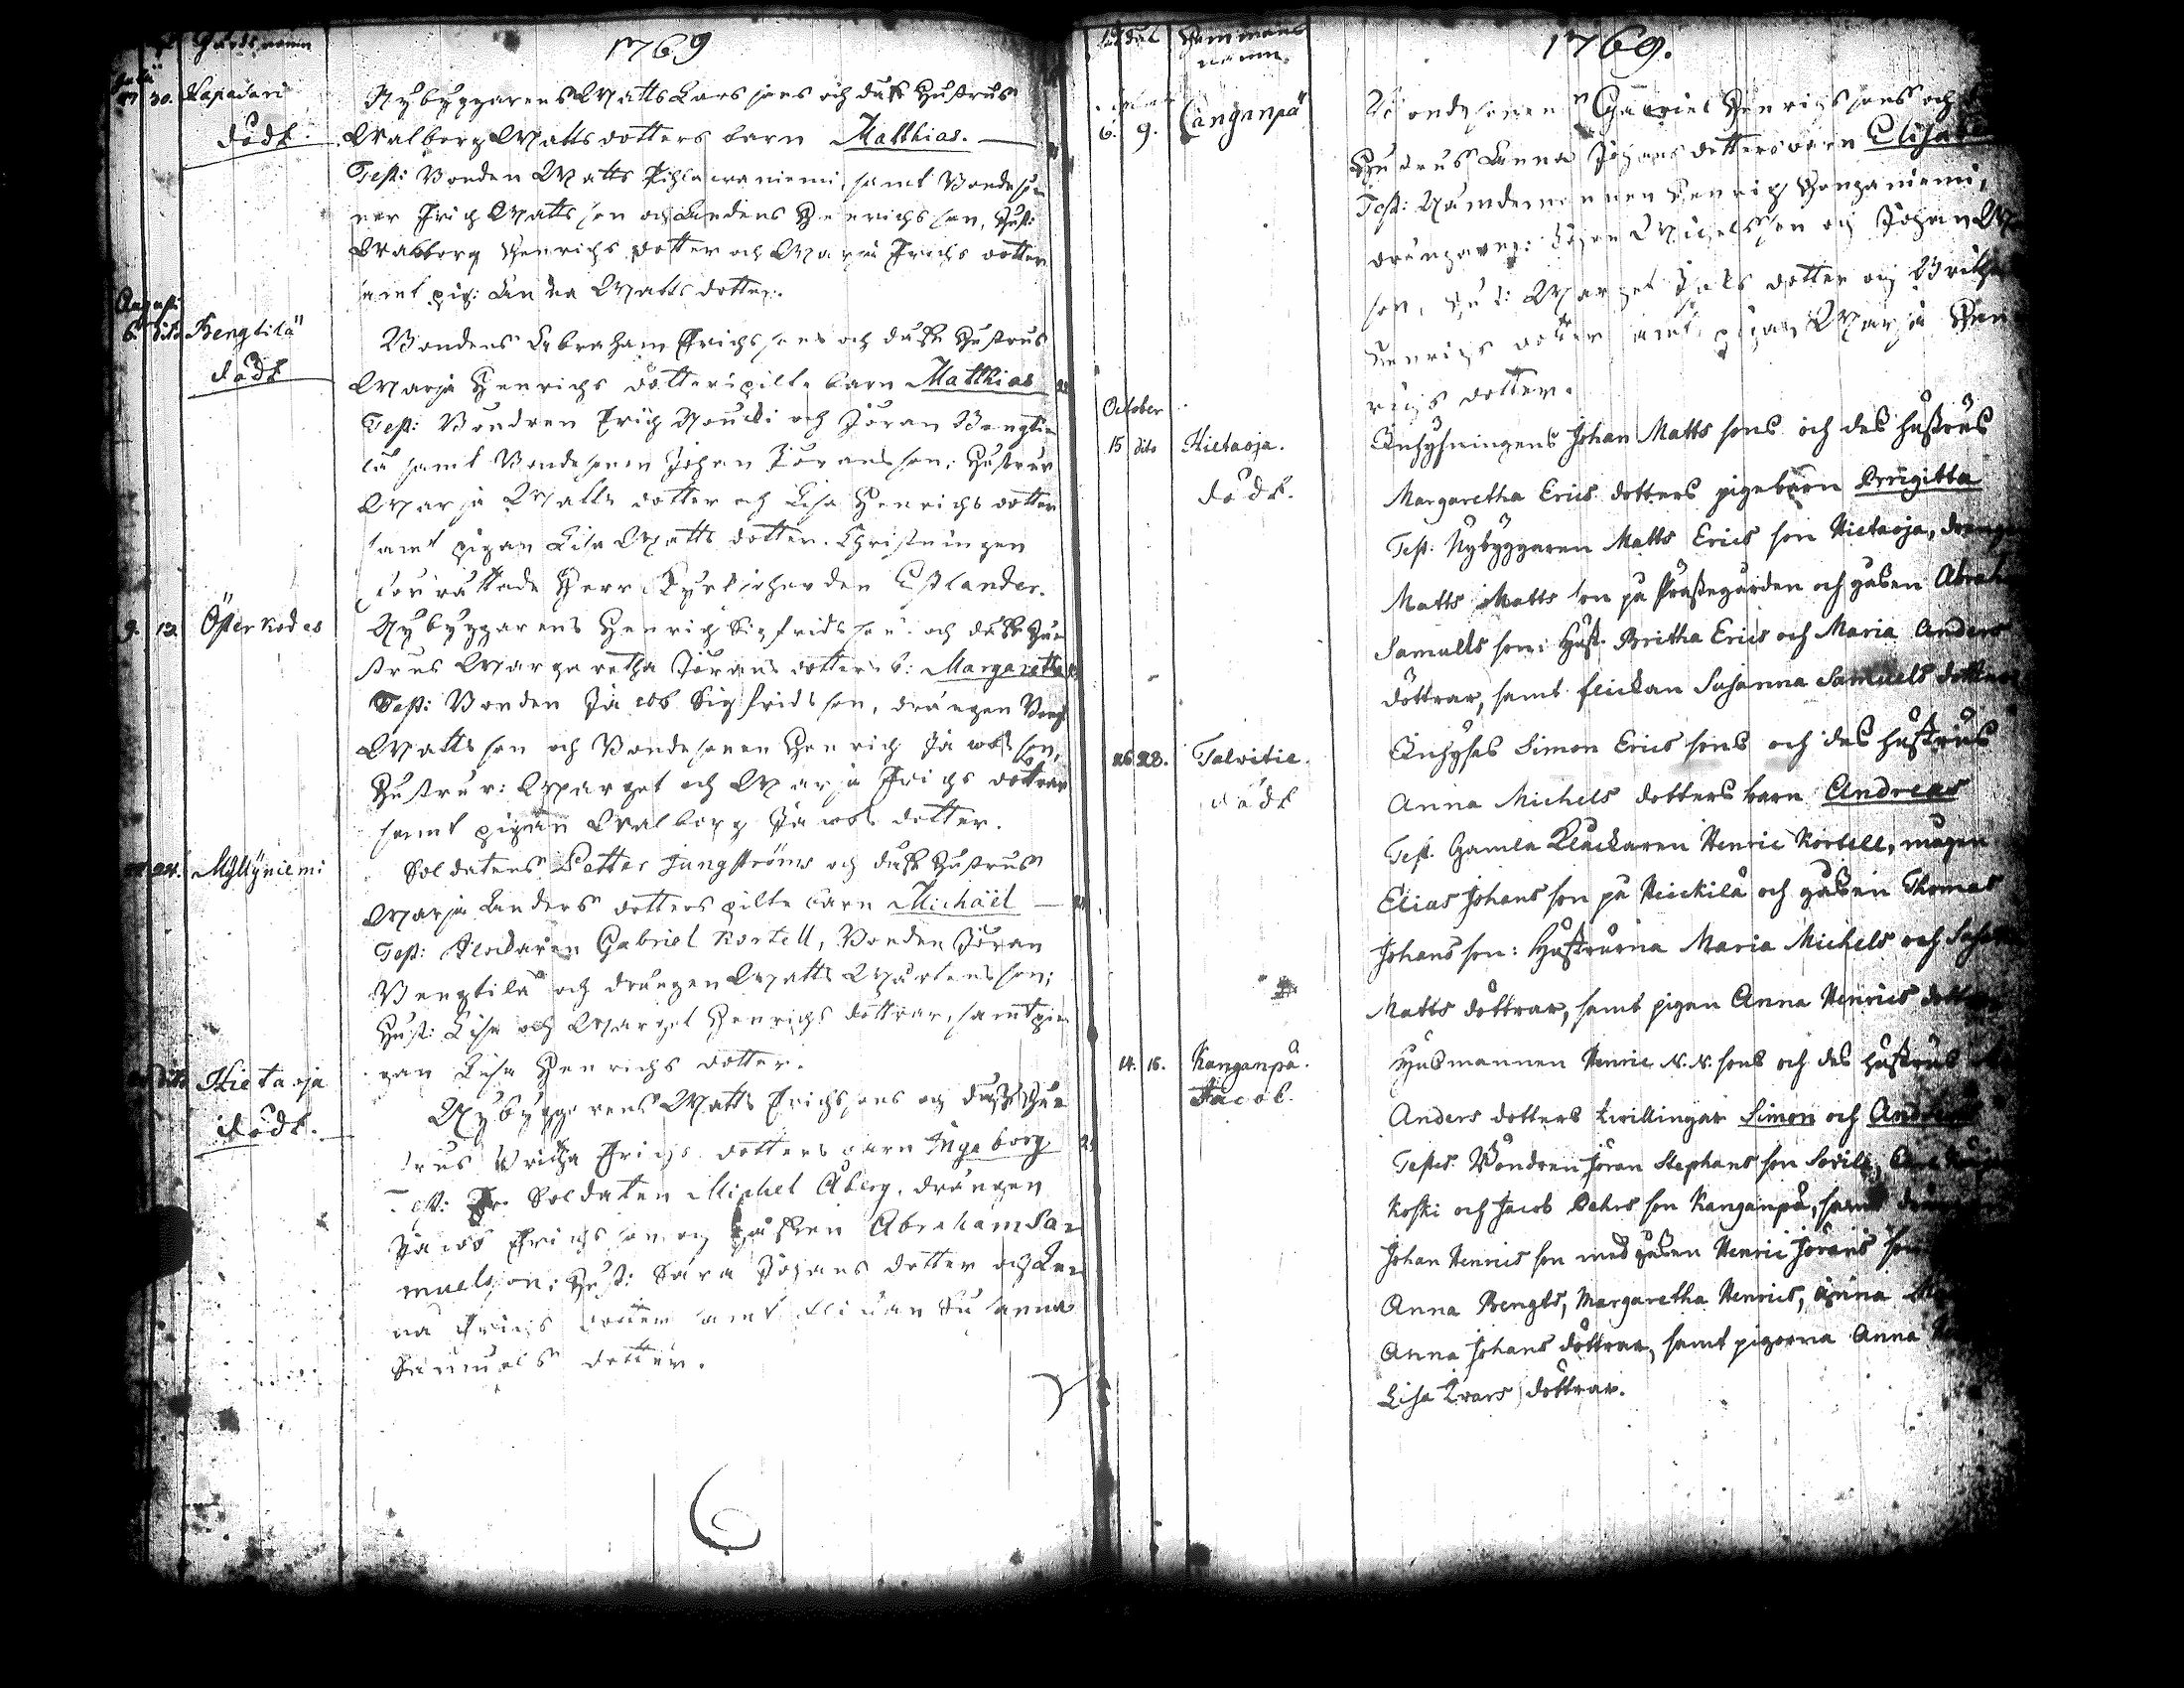 1769
Julii
27 30. Lapalari
död.
Nybyggarens Matts Lars sons och dess hustrus
Walborg Matts dotters barn Matthias.
Test: Bonden Matts samt Bondesö-
ner Erich Matts son och Anders Henrichs son, Hust:
Walborg Henrichs dotter och Maria Erichs dotter
samt pig: Anna Matts dotter.
August:
6. dito Bengtilä
död
Bondens Abraham Erichs sons och dess hustrus
Maria Henrichs dotters pilte barn Matthias
Test: Bondren Erich Koucki och Jöran Bengti-
lä samt Bondesonen Johan Jörans son; Hustrur
Maria Matts dotter och Lisa Henrichs dotter
samt pigan Lisa Matts dotter. Christningen
förrättade Herr Kyrkioherden Estlander.
9. 13. Österkodes
Nybyggarens Henrich Sigfrids sons och dess hu-
strus Margaretha Jörans dotters b: Margaretha
Test: Bonden Jacob Sigfrids son, drängen
Matts son och Bondesonen Henrich Jacobs son,
Hustrur: Marget och Maria Erichs döttrar
samt pigan Walborg Jacobs dotter.
24. Myllyniemi
Soldatens Petter Ljungströms och dess hustrus
Maria Anders dotters pilte barn Michäel
Test: Klockaren Gabriel Kortell, Bonden Jöran
Bengtilä och drängen Matts Mårtens son;
Hust: Lisa och Marget Henrichs döttrar, samt pi-
gan Lisa Henrichs dotter.
dito Hietaoja
död.
Nybyggarens Matts Erichs sons och dess hu-
strus Britha Erichs dotters barn Ingeborg
Test: Soldaten Michel Åberg, drängen
Jacob Erichs son och gåssen Abraham Sa-
muels son; Hust: Sara Johans dotter och An-
na Erichs dotter samt flickan Susanna
Samuels dotter.
1769.
6. 9. Canganpä
Bondesonens Gabriel Henrichs sons och
Hustrus Anna Johans dotters barn
Test: Nämdemannen Henrich Honganiemi,
drängarne: Johan Michels son och Johan
son, Hust: Marget Jacobs dotter och Britha
Henrichs dotter samt pigan Maria Hen-
richs dotter.
October
15 dito Hietaoja.
död.
Inhysningens Johan Matts sons och des hustrus
Margaretha Erics dotters pigebarn Brigitta
Test: Nybyggaren Matts Erics son Hietaoja, drängen
Matts Matts son på Prästegården och gåsen
Samuels son: Hust. Britha Erics och Maria Anders
döttrar, samt flickan Susanna Samuels dotter
26 28. Talvitie.
död
Inhyses Simon Erics sons och des hustrus
Anna Michels dotters barn Andreas
Test. Gamla Klåckaren Henric Kortell, mågen
Elias Johans son på Heickilä och gåsen Thomas
Johans son: Hustrurna Maria Michels och
Matts döttrar, samt pigan Anna Henrics dotter
14. 16. Kanganpä.
Jacob.
Husmannen Henric N. N. sons och des hustrus
Anders dotters twillingar Simon och
Testes. Bondren Jöran Stephans son
Koski och Jacob son Kanganpä, samt
Johan Henrics son med gåsen Henric Jörans son
Anna Bengts, Margaretha Henrics, Anna
Anna Johans döttrar, samt pigorna Anna
Lisa Ivars döttrar.